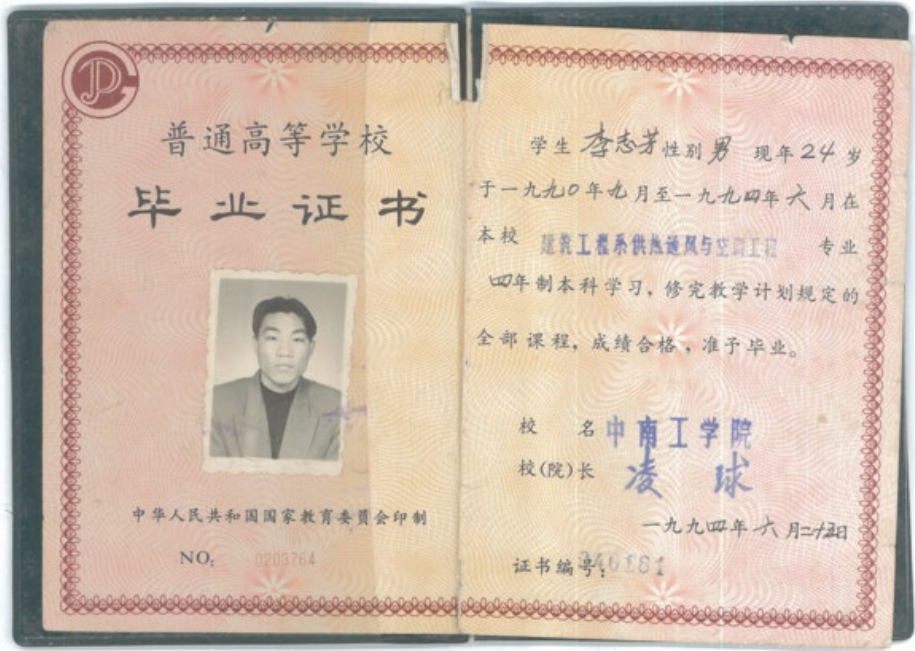 普通高等学校
毕业证书
中华人民共和国国家教育委员会印制
NO: 0203764
学生 李志芳 性别 男 现年 24 岁
于一九九〇年九月至一九九四年六月在
本校 建筑工程系供热通风与空调工程 专业
四年制本科学习，修完教学计划规定的
全部课程，成绩合格，准予毕业。
校 名 中南工学院
校(院)长 凌球
一九九四年六月二十日
证书编号: